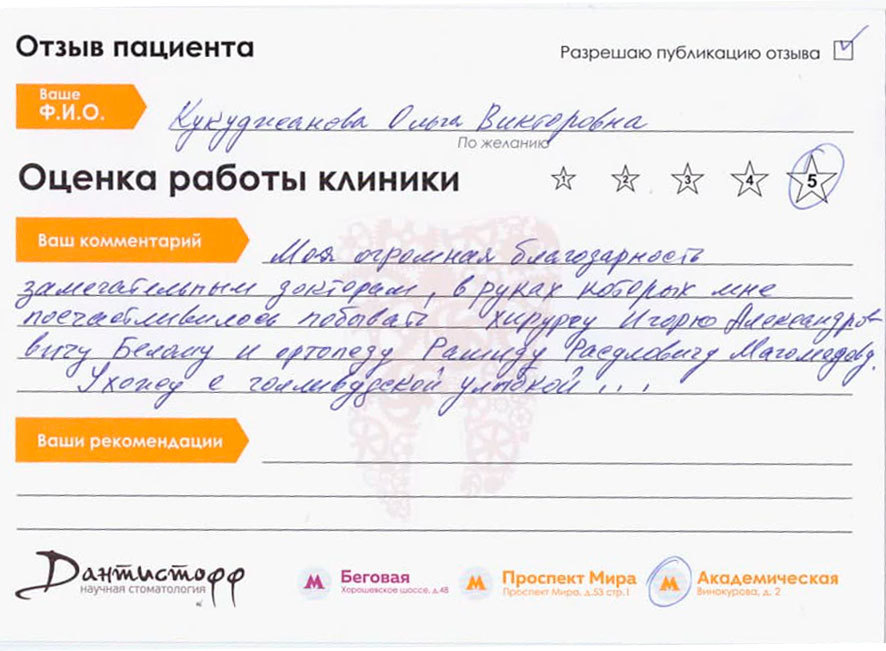 Отзыв пациента
Разрешаю публикацию отзыва
Ваше
Ф.И.О.
Кукуджанова Ольга Викторовна
По желанию
Оценка работы клиники
1 2 3 4 5
Ваш комментарий
Моя огромная благодарность
замечательным докторам, в руках которых мне
посчастливилось побывать хирургу Игорю Александро-
вичу Белому и ортопеду Рашиду Расуловичу Магомедову.
Ухожу с голливудской улыбкой ...
Ваши рекомендации
Дантистофф
научная стоматология
М Беговая
Хорошевское шоссе, д.48
М Проспект Мира
Проспект Мира, д.53 стр.1
М Академическая
Винокурова, д. 2